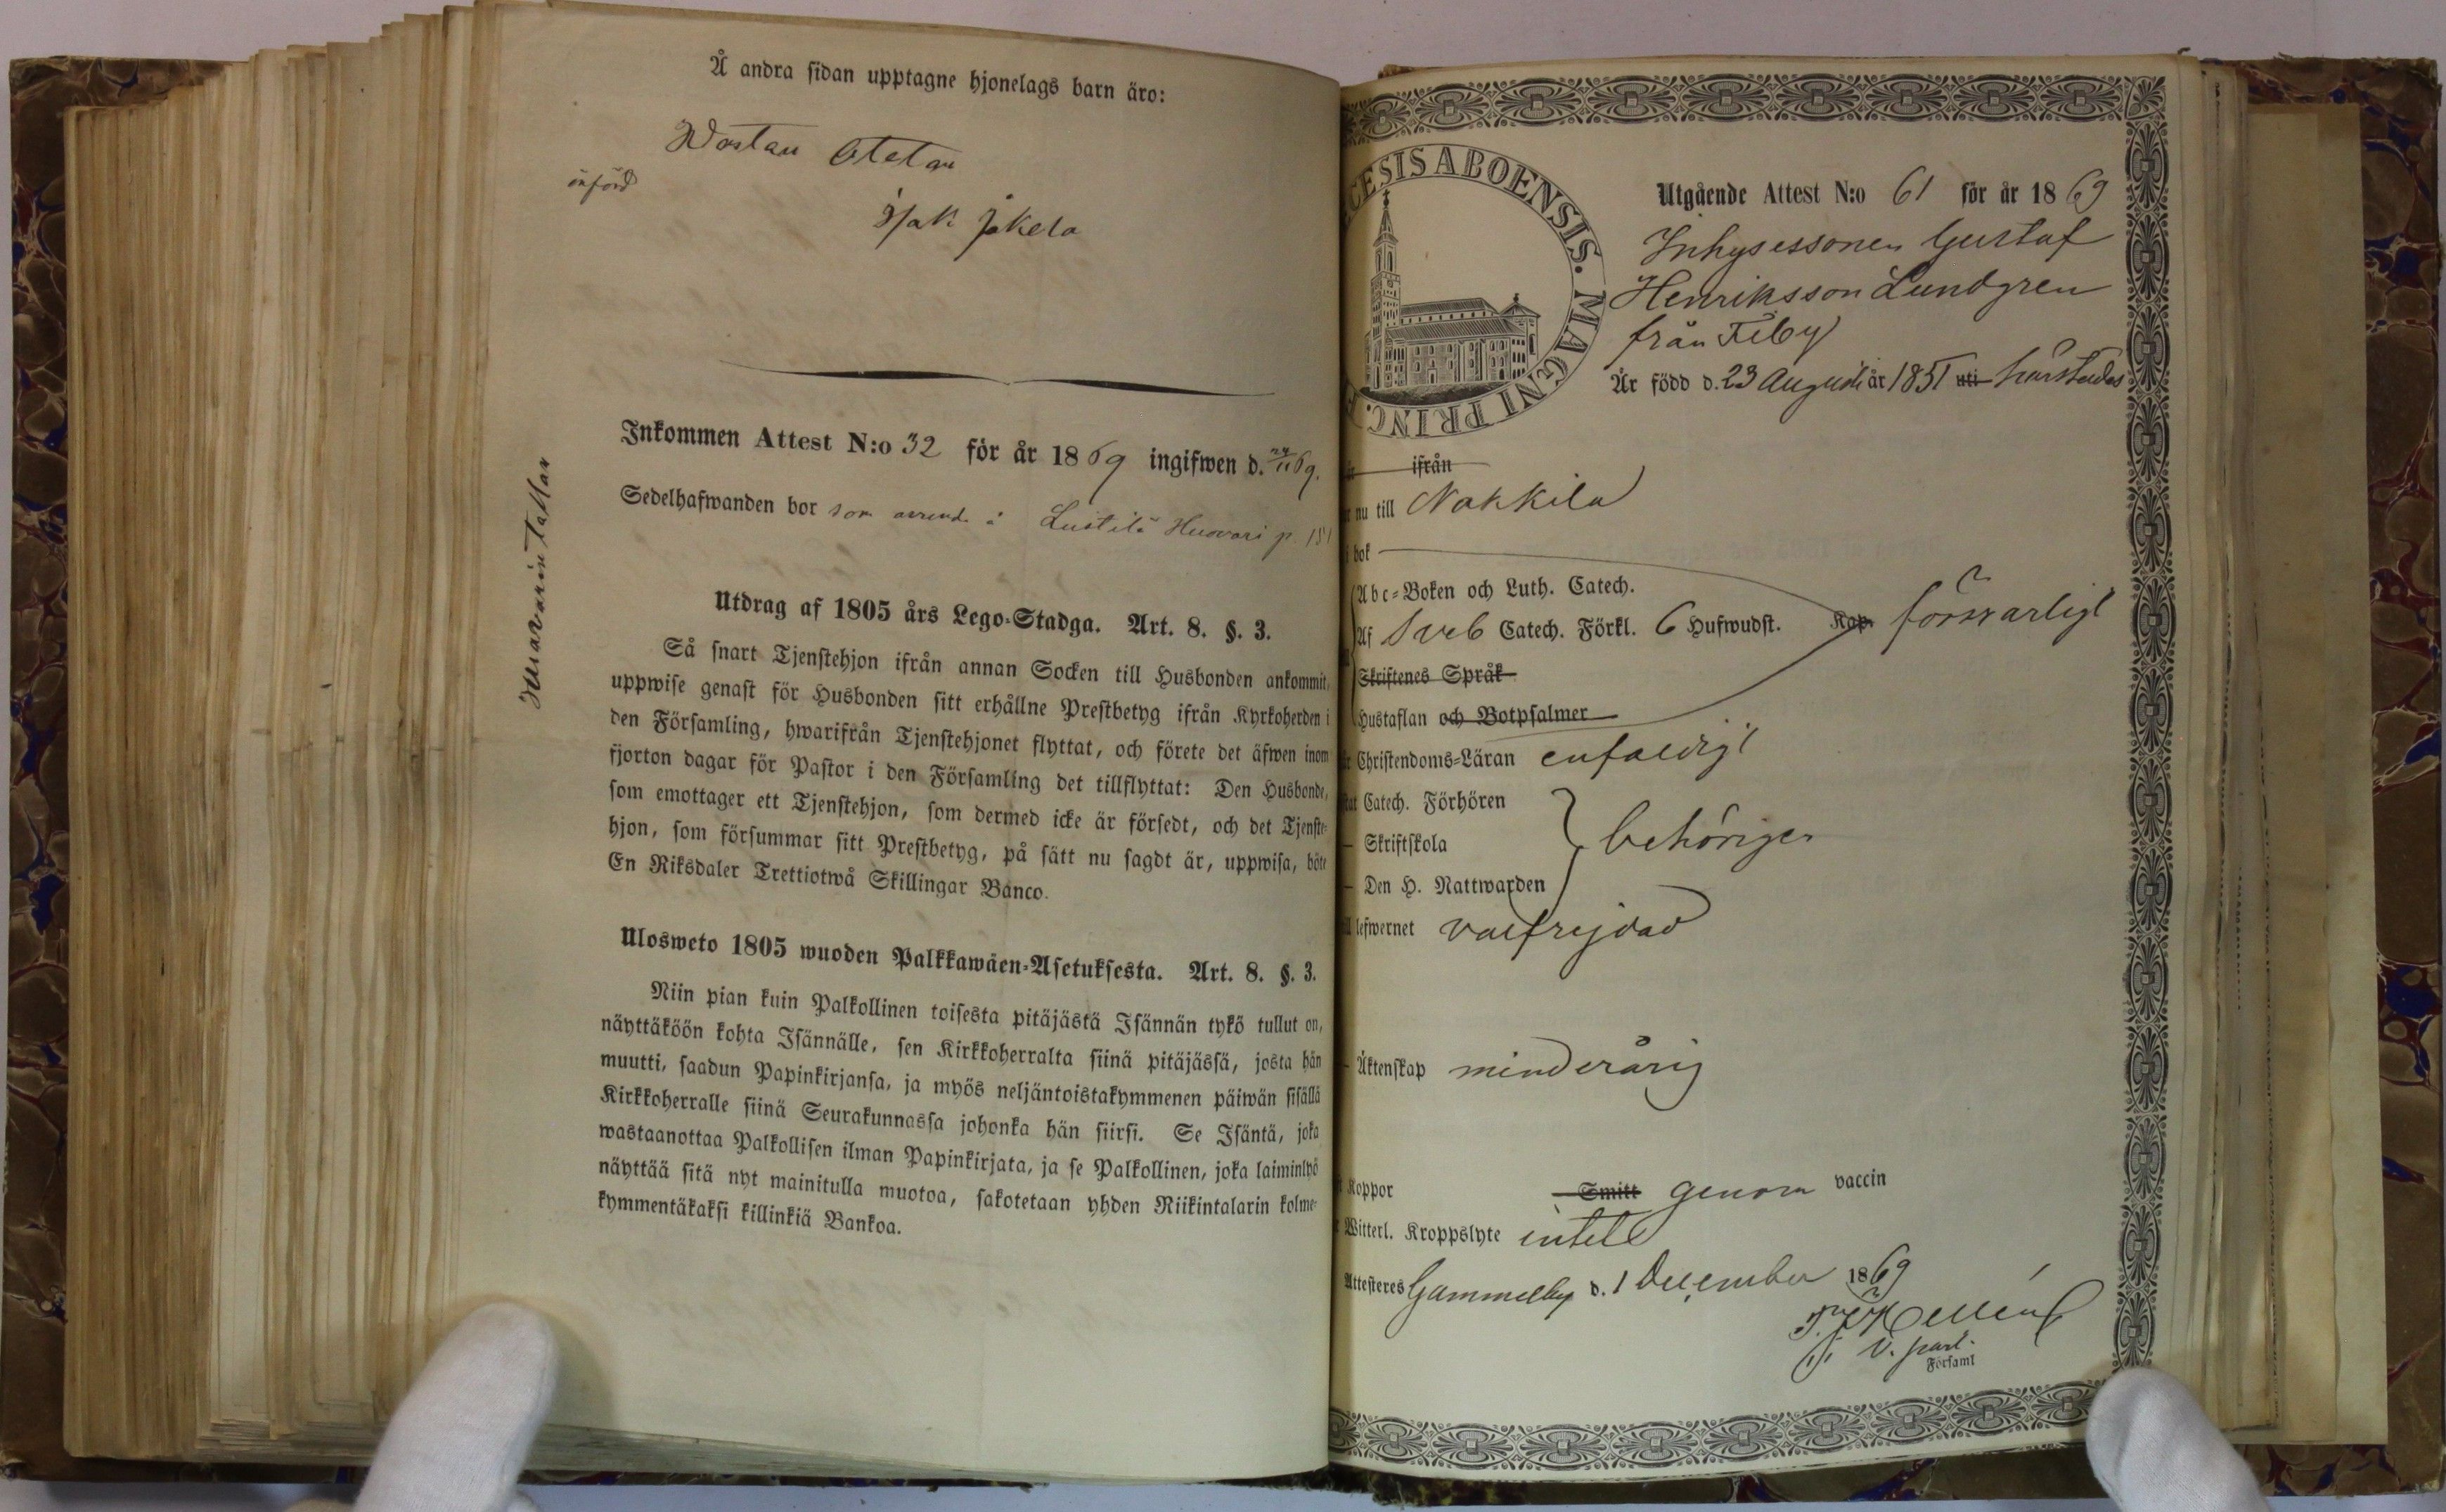 Å andra sidan upptagne hjonelags barn äro:
införd
Isak Jokela
Inkommen Attest N:o 32 för år 1869 ingifwen d. 24/11 69.
Sedelhafwanden bor som å p. 151
Utdrag af 1805 års Lego-Stadga. Art. 8. §. 3.
Så snart Tjenstehjon ifrån annan Socken till Husbonden ankommit,
uppwise genast för Husbonden sitt erhållne Prestbetyg ifrån Kyrkoherden i
den Församling, hwarifrån Tjenstehjonet flyttat, och förete det äfwen inom
fjorton dagar för Pastor i den Församling det tillflyttat: Den Husbonde,
som emottager ett Tjenstehjon, som dermed icke är försedt, och det Tjenste-
hjon, som försummar sitt Prestbetyg, på sätt nu sagdt är, uppwisa, böte
En Riksdaler Trettiotwå Skillingar Banco.
Ulosweto 1805 wuoden Palkkawäen-Asetuksesta. Art. 8. §. 3.
Niin pian kuin Palkollinen toisesta pitäjästä Isännän tykö tullut on,
näyttäköön kohta Isännälle, sen Kirkkoherralta siinä pitäjässä, josta hän
muutti, saadun Papinkirjansa, ja myös neljäntoistakymmenen päiwän sisällä
Kirkkoherralle siinä Seurakunnassa johonka hän siirsi. Se Isäntä, joka
wastaanottaa Palkollisen ilman Papinkirjata, ja se Palkollinen, joka laiminlyö
näyttää sitä nyt mainitulla muotoa, sakotetaan yhden Riikintalarin kolme-
kymmentäkaksi killinkiä Bankoa.
CESIS ABOENSIS. MAGNI PRINC.
Utgående Attest N:o 61 för år 1869
Inhysessonen Gustaf
Henriksson Lundgren
från
Är född d. 23 Augusti år 1851 uti härstädes
ifrån
nu till Nakkila
i bok
Abc-Boken och Luth. Catech.
Af Sveb Catech. Förkl. 6 Hufwudst. Kap. försvarligt
Skriftenes Språk
Hustaflan och Botpsalmer
Christendoms-Läran enfaldigt
Catech. Förhören
— Skriftskola behörigen
— Den H. Nattwarden
lefwernet välfrejdad
Äktenskap minderårig
Koppor Smitt genom vaccin
Witterl. Kroppslyte intet
Attesteres Gammelby d. 1 December 1869
v. past.
Församl